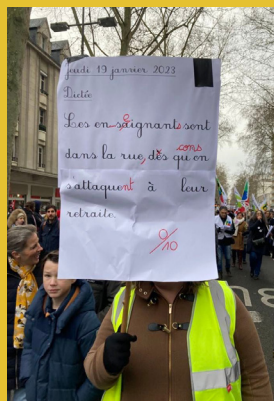 Jeudi 19 janvier 2023
Dictée
Les en saignants sont
dans la rue, dès qu'on
s'attaquent à leur
retraite.
0/10